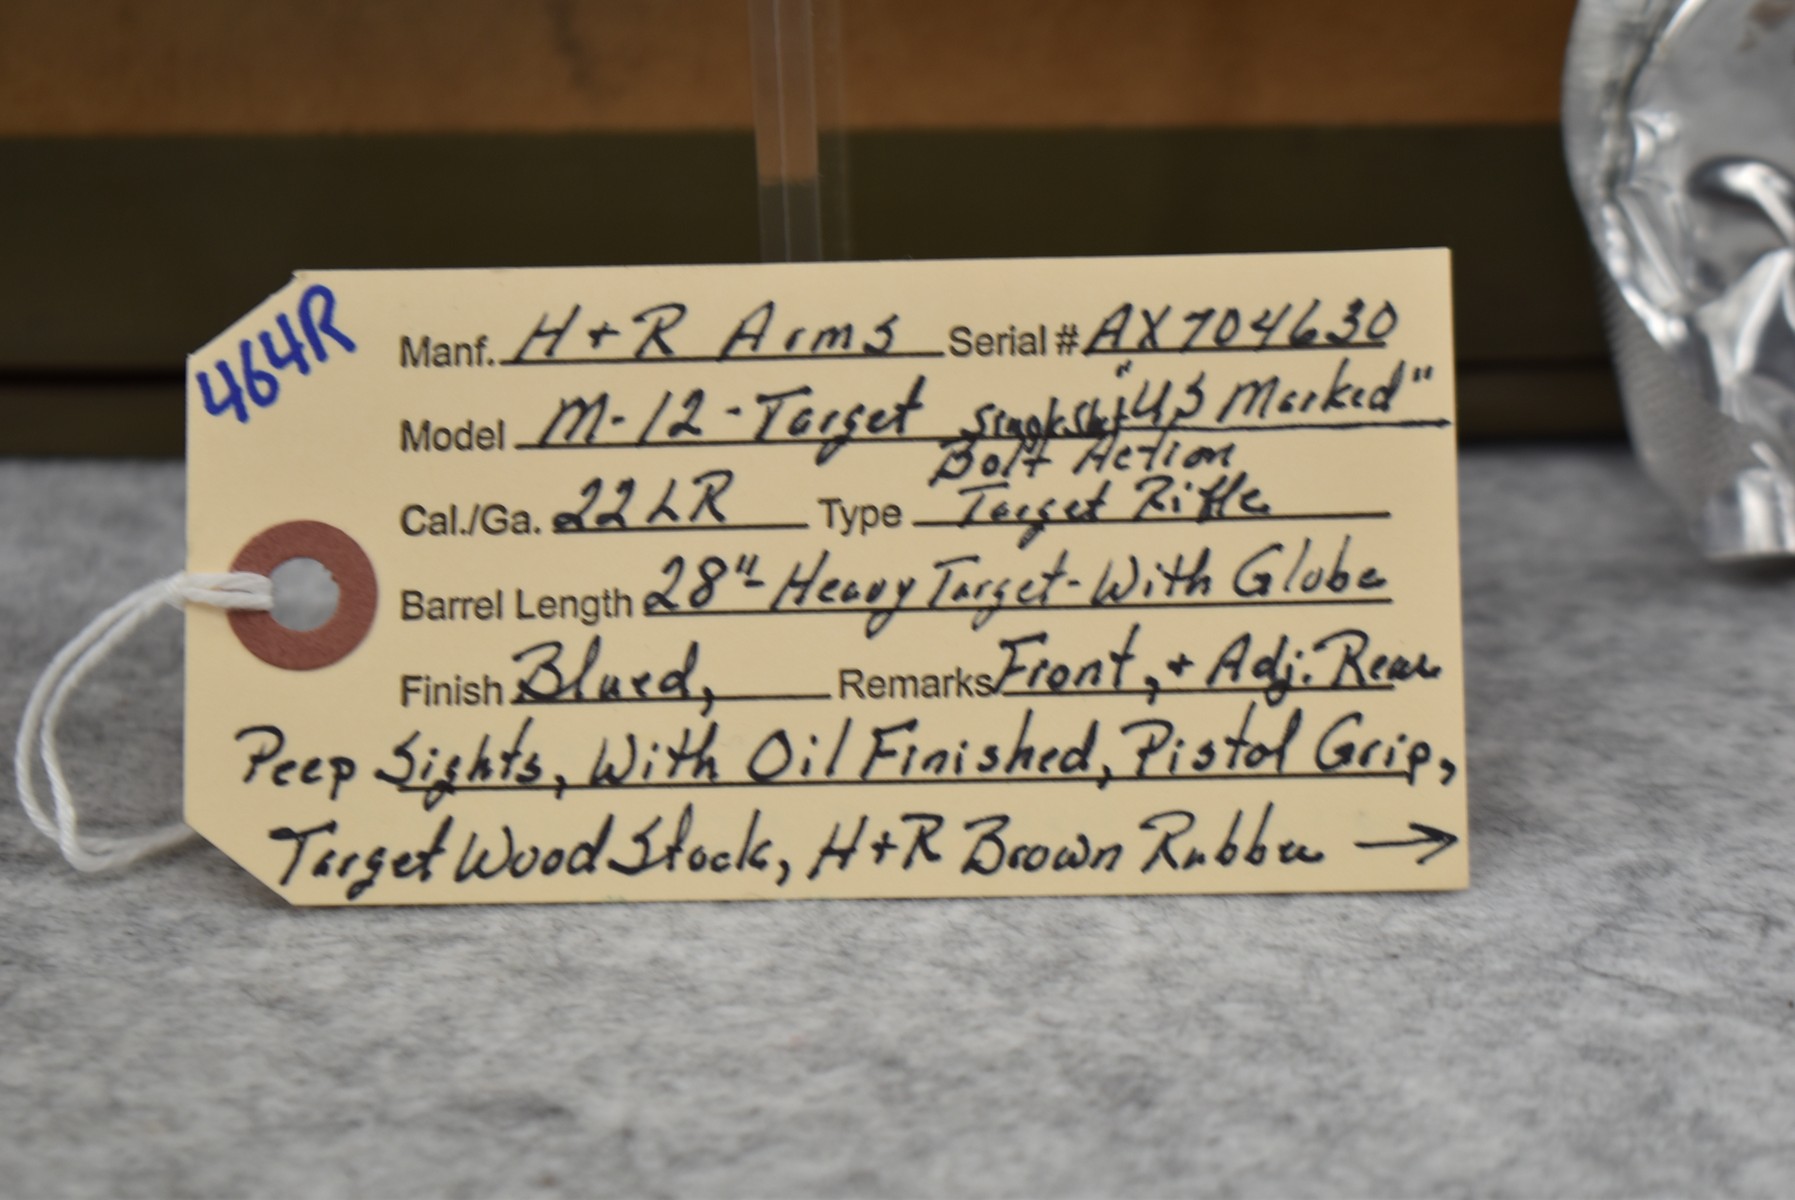 464R
Manf. H+R Arms Serial # AX704630
Model M-12-Target Singl Shot "US Marked"
Bolt Action
Cal./Ga. 22LR Type Target Rifle
Barrel Length 28"- Heavy Target - With Globe
Finish Blued, Remarks Front, + Adj. Rear
Peep Sights, With Oil Finished, Pistol Grip,
Target Wood Stock, H+R Brown Rubber →